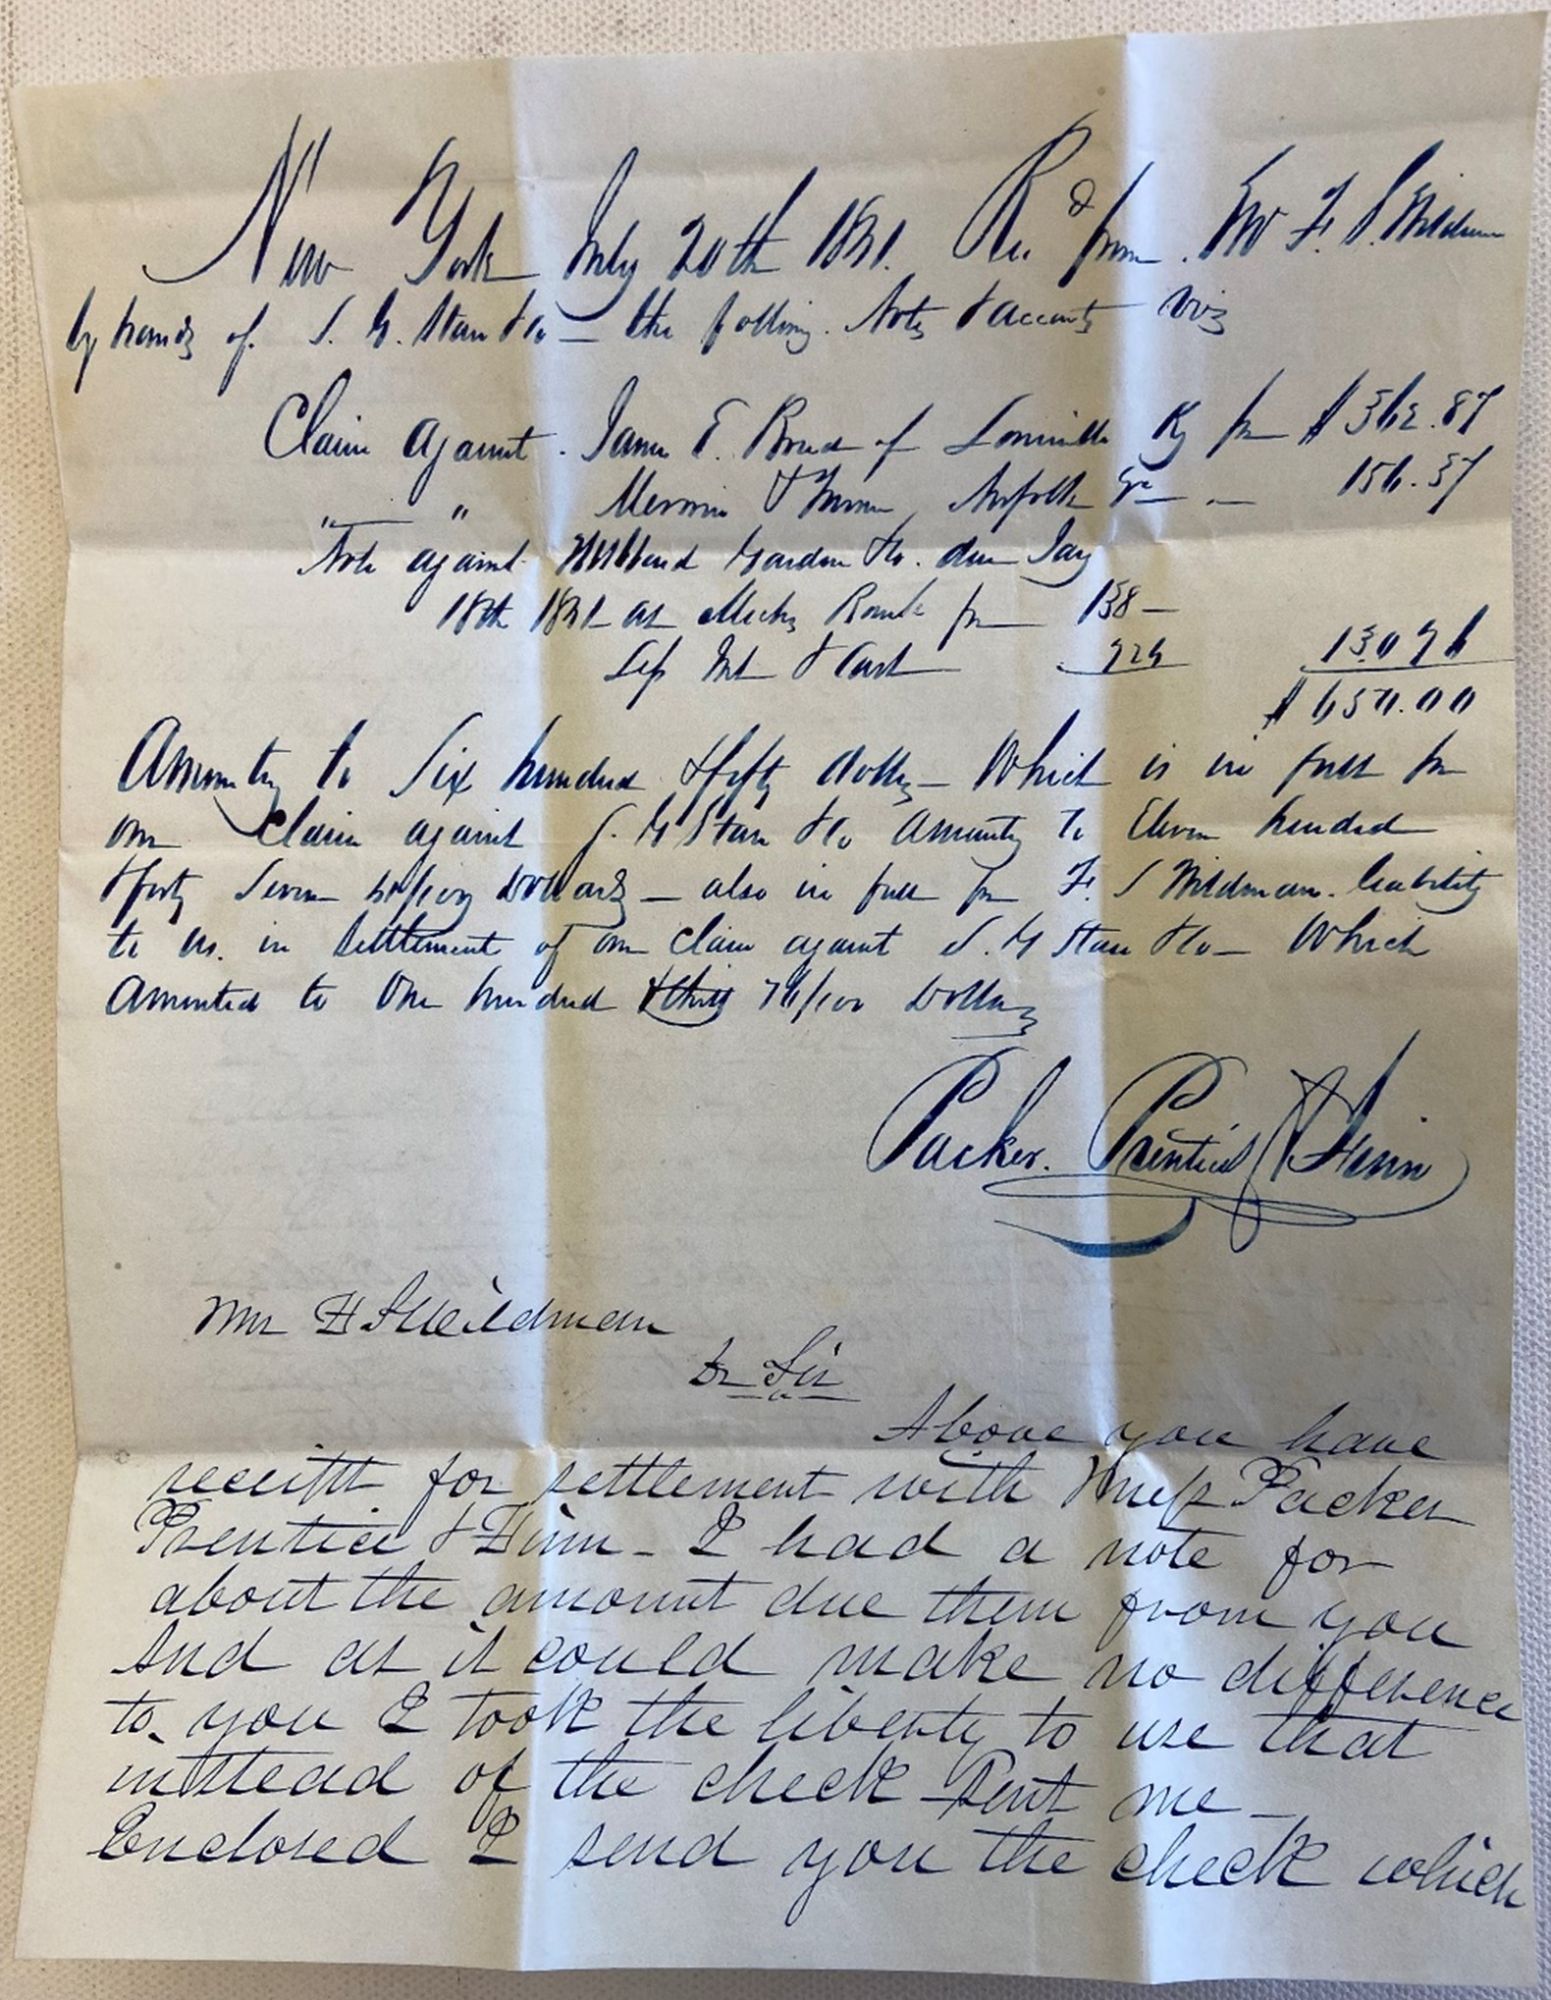 New York July 20th 18 Recd from Mr F. S. Wildman
by hands of S. G. Starr & Co — the following Notes & accounts viz
Claim against James E. Breed of Louisville Ky for $362.87
" " & Norfolk Va — 156.37
Note against Hubbard Gordon & Co. due Jay
18th 18 at Mechs for 138 —
Les Int & Cost 724 130 76
$650.00
Amountg to Six hundred & fifty dolls — Which is in full for
our Claim against S. G Starr & Co Amountg to Eleven hundred
& forty Seven /100 Dollars — also in full for F. S Wildman liability
to us. in Settlement of our claim against S. G Starr & Co — Which
Amounted to One hundred & thirty 76/100 Dollars
Packer. Prentice & Finn
Mr F S Wildman
Dr Sir
Above you have
receipt for settlement with Mess Packer
Prentice & Finn — I had a note for
about the amount due them from you
And as it could make no difference
to you I took the liberty to use that
instead of the check sent me —
Enclosed I send you the check which